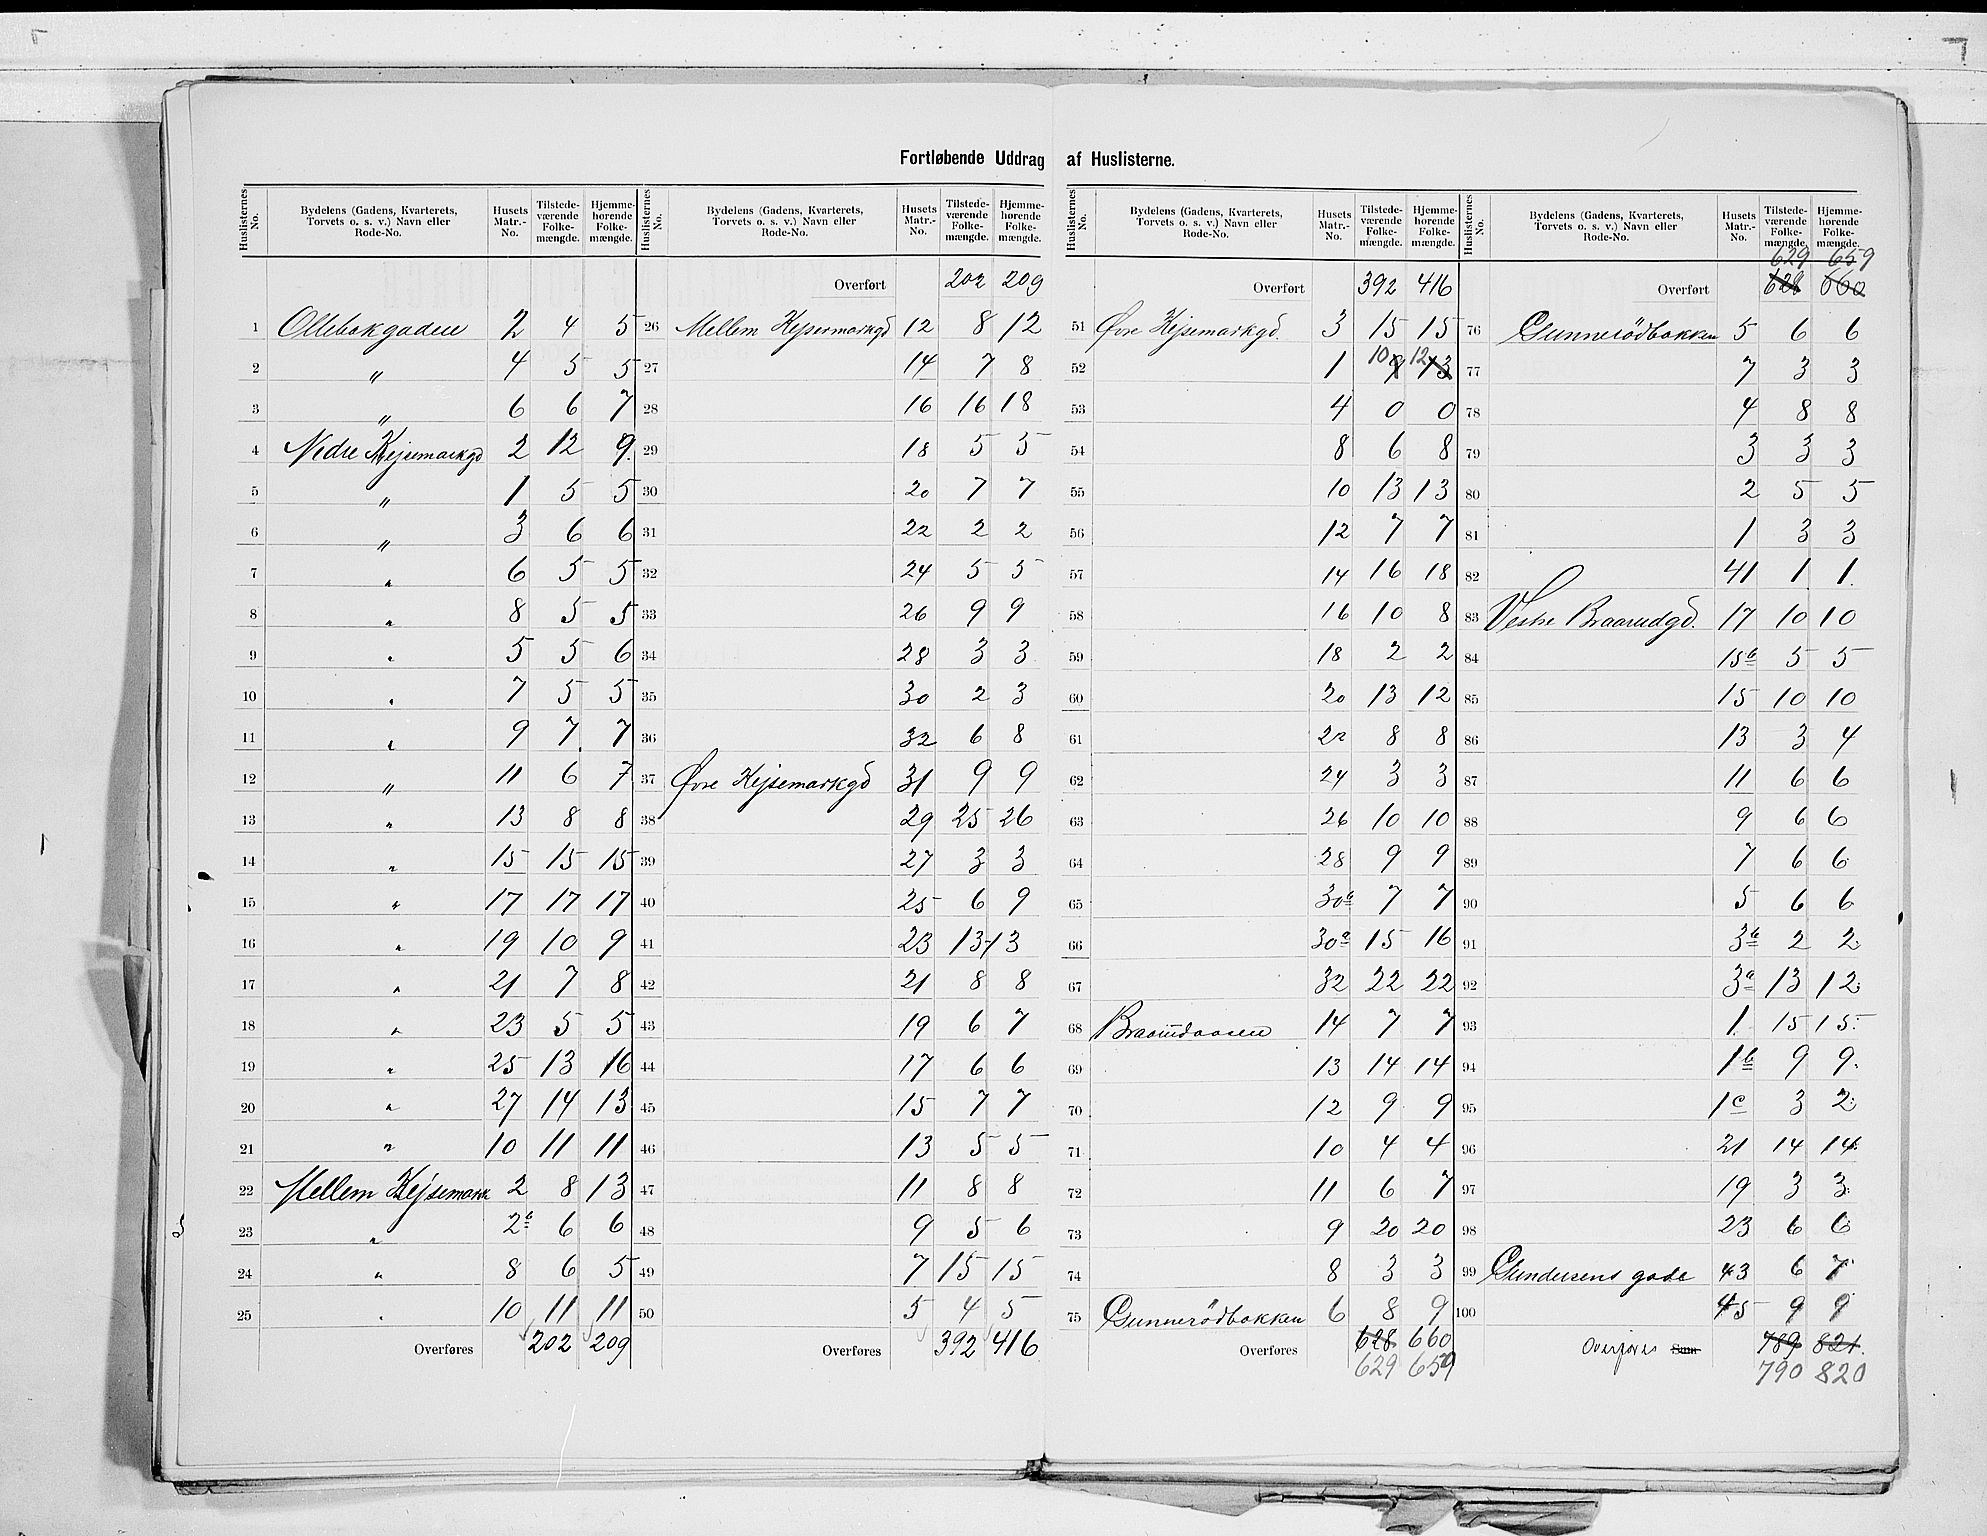 Fortløbende Uddrag af Huslisterne.
Huslisternes No. | Bydelens (Gadens, Kvarterets, Torvets o. s. v.) Navn eller Rode-No. | Husets Matr.-No. | Tilstedeværende Folkemængde. | Hjemmehørende Folkemængde.
1 Ollebakgaden 2 4 5
2 " 4 5 5
3 " 6 6 7
4 Nedre Kejsemarkgd 2 12 9
5 " 1 5 5
6 " 3 6 6
7 " 6 5 5
8 " 8 5 5
9 " 5 5 6
10 " 7 5 5
11 " 9 7 7
12 " 11 6 7
13 " 13 8 8
14 " 15 15 15
15 " 17 17 17
16 " 19 10 9
17 " 21 7 8
18 " 23 5 5
19 " 25 13 16
20 " 27 14 13
21 " 10 11 11
22 Mellem Kejsemark 2 8 13
23 " 2b 6 6
24 " 8 6 5
25 " 10 11 11
Overføres 202 209
Huslisternes No. | Bydelens (Gadens, Kvarterets, Torvets o. s. v.) Navn eller Rode-No. | Husets Matr.-No. | Tilstedeværende Folkemængde. | Hjemmehørende Folkemængde.
Overført 202 209
26 Mellem Kejsermarkgd 12 8 12
27 14 7 8
28 16 16 18
29 18 5 5
30 20 7 7
31 22 2 2
32 24 5 5
33 26 9 9
34 28 3 3
35 30 2 3
36 32 6 8
37 Øvre Kejsemarkgd 31 9 9
38 29 25 26
39 27 3 3
40 25 6 9
41 23 13 13
42 21 8 8
43 19 6 7
44 17 6 6
45 15 7 7
46 13 5 5
47 11 8 8
48 9 5 6
49 7 15 15
50 5 4 5
Overføres 392 416
Huslisternes No. | Bydelens (Gadens, Kvarterets, Torvets o. s. v.) Navn eller Rode-No. | Husets Matr.-No. | Tilstedeværende Folkemængde. | Hjemmehørende Folkemængde.
Overført 392 416
51 Øvre Kejsemarkgd. 3 15 15
52 1 10 9 12 13
53 4 0 0
54 8 6 8
55 10 13 13
56 12 7 7
57 14 16 18
58 16 10 8
59 18 2 2
60 20 13 12
61 22 8 8
62 24 3 3
63 26 10 10
64 28 9 9
65 30b 7 7
66 30a 15 16
67 32 22 22
68 Braarudaasen 14 7 7
69 13 14 14
70 12 9 9
71 10 4 4
72 11 6 7
73 9 20 20
74 8 3 3
75 Gunnerödbakken 6 8 9
Overføres 628 660
629 659
Huslisternes No. | Bydelens (Gadens, Kvarterets, Torvets o. s. v.) Navn eller Rode-No. | Husets Matr.-No. | Tilstedeværende Folkemængde. | Hjemmehørende Folkemængde.
629 659
Overført 628 660
76 Gunnerödbakken 5 6 6
77 7 3 3
78 4 8 8
79 3 3 3
80 2 5 5
81 1 3 3
82 41 1 1
83 Vestre Braarudgd. 17 10 10
84 15b 5 5
85 15 10 10
86 13 3 4
87 11 6 6
88 9 6 6
89 7 6 6
90 5 6 6
91 3b 2 2
92 3a 13 12
93 1 15 15
94 1b 9 9
95 1c 3 2
96 21 14 14
97 19 3 3
98 23 6 6
99 Gundersens gade 43 6 7
100 45 9 9
Overføres Sum 789 821
790 820